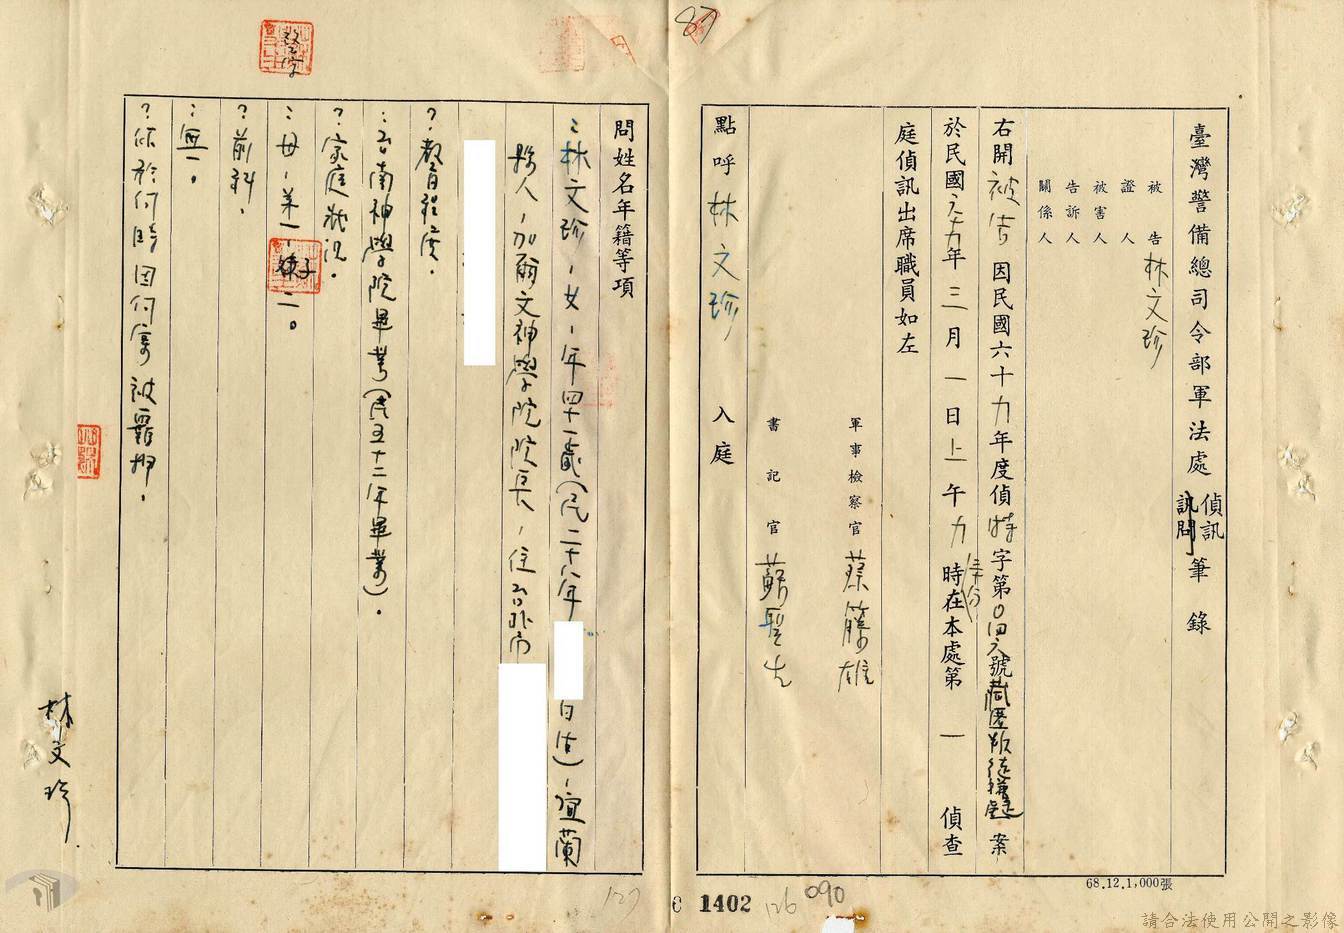 87
臺灣警備總司令部軍法處偵訊訊問筆錄
被告 林文珍
證人
被害人
告訴人
關係人
右開被告因民國六十九年度偵特字第0四六號藏匿叛徒嫌疑案
於民國六十九年三月一日上午九時三十分在本處第一偵查
庭偵訊出席職員如左
軍事檢察官 蔡籐雄
書記官
點呼林文珍入庭
68.12.1,000張
1402
126
090
問姓名年籍等項
:林文珍、女、年四十一歲(民二十八年
日生)、宜蘭
縣人、加爾文神學院院長、住台北市
?教育程度。
:台南神學院畢業(民五十二年畢業)。
?家庭狀況。
:母、弟一、妹二。
?前科。
:無。
?你於何時因何案被羈押。
林文珍
127
請合法使用公開之影像